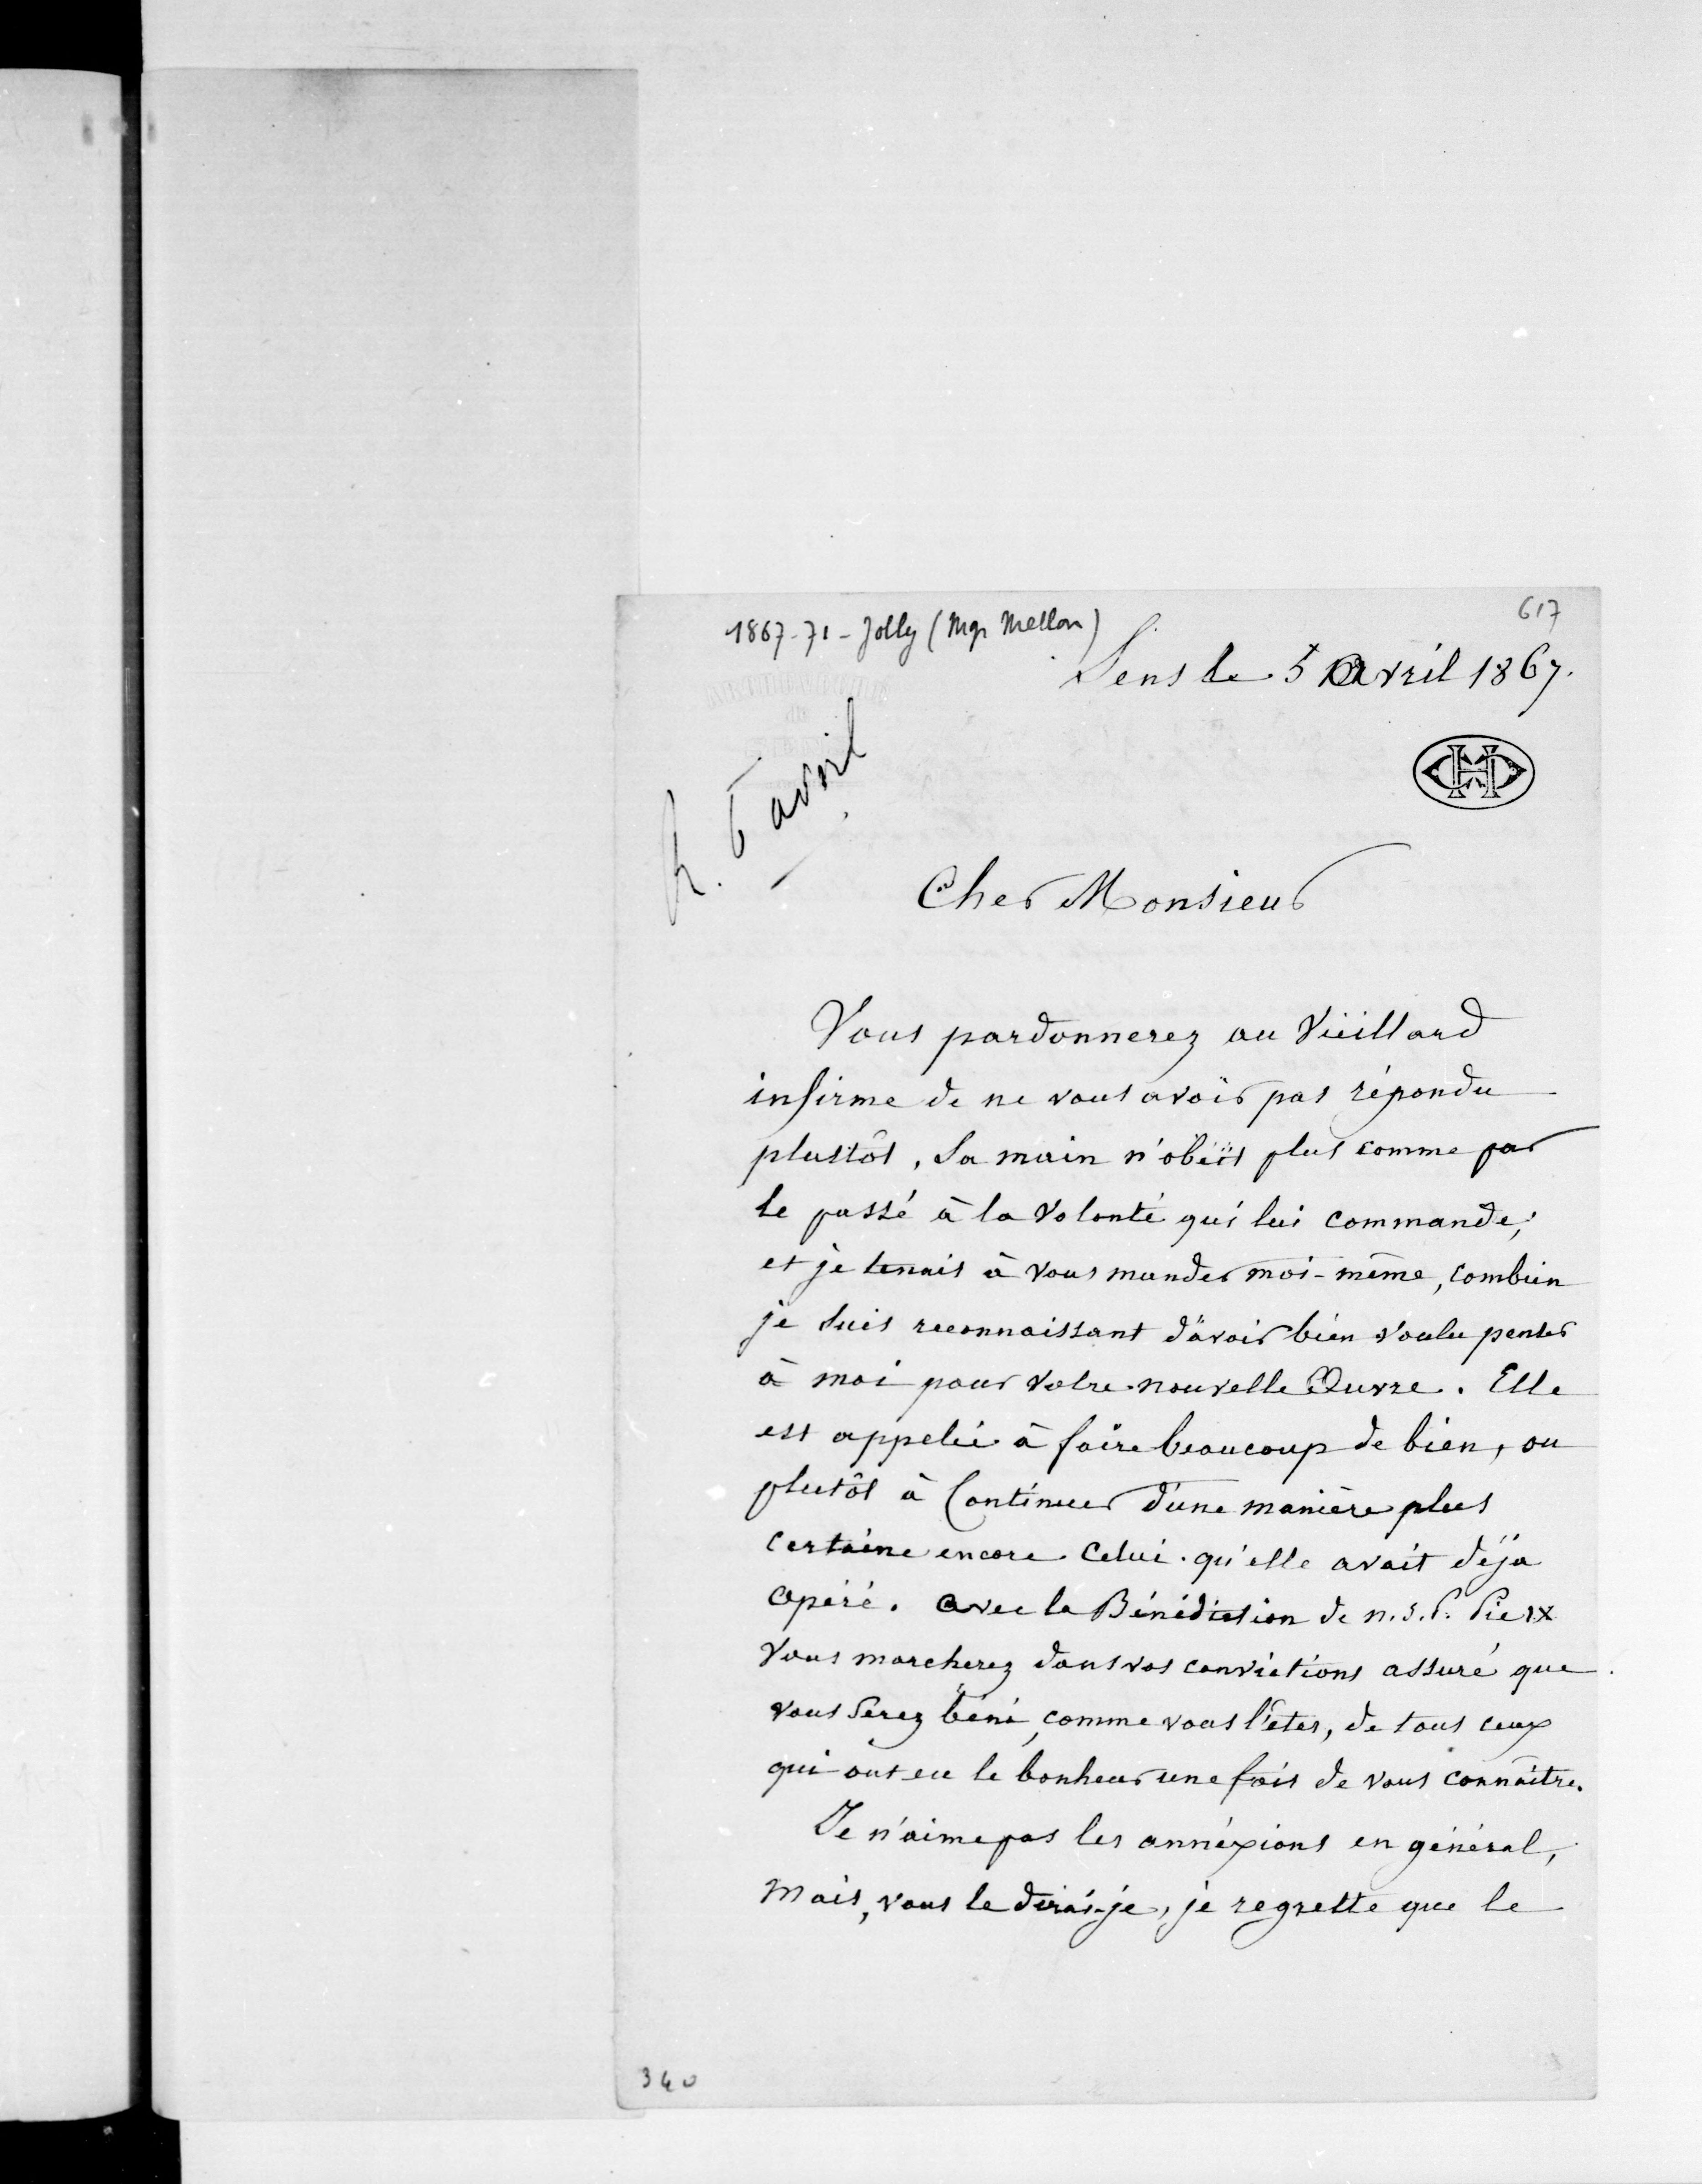 617
1867-71 - Jolly (Mgr Mellon)
Sens le 5 Avril 1867.
R. 6 avril
Cher Monsieur
Vous pardonnerez au Vieillard
infirme de ne vous avoir pas répondu
plustôt. Sa main n'obéit plus comme par
le passé à la Volonté qui lui commande;
et je tenais à vous mander moi-même, combien
je suis reconnaissant d'avoir bien voulu penser
à moi pour votre nouvelle Œuvre. Elle
est appelée à faire beaucoup de bien, ou
plutôt à Continuer d'une manière plus
certaine encore celui qu'elle avait déja
opéré. avec la Bénédiction de N.S.P. Pie IX
Vous marcherez dans vos convictions assuré que
vous serez béni, comme vous l'êtes, de tous ceux
qui ont eu le bonheur une fois de vous connaître.
Je n'aime pas les annéxions en général,
Mais, vous le dirai-je, je regrette que le
340